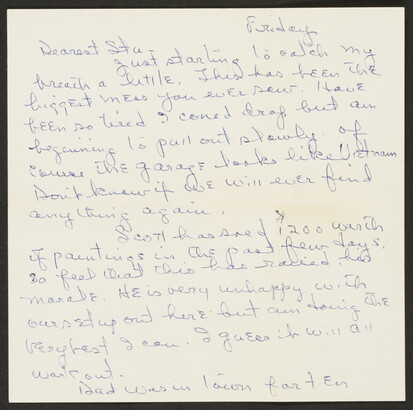 Friday
Dearest Stu -
Just starting to catch my
breath a little. This has been the
biggest mess you ever saw. Have
been so tired I coned drop but am
beginning to pull out slowly. Of
course the garage looks like Vietnam
Don't know if we will ever find
anything again.
Scott has sold $1200 worth
of paintings in the past few days.
So feel that this has raised his
morale. He is very unhappy with
our setup out here but am doing the
very best I can. I guess it will all
work out.
Dad was in town for ten